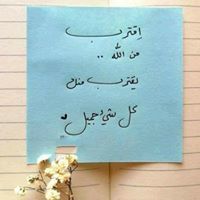 اقترب
من الله ..
يقترب منك
كل شيء جميل